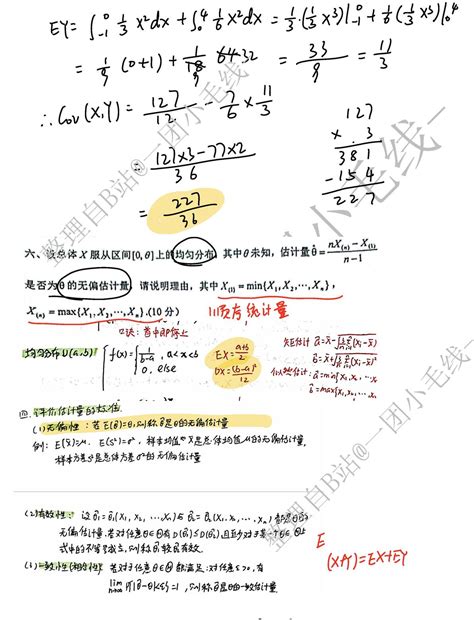 EY=∫₋₁⁰ 1/3 x²dx + ∫₀⁴ 1/6 x²dx = 1/3·(1/3 x³)|₋₁⁰ + 1/6(1/3 x³)|₀⁴
= 1/9 (0+1) + 1/18 64 32 = 33/9 = 11/3
∴ Cov(X,Y) = 127/12 - 7/6 × 11/3
= (127×3-77×2)/36
= 227/36
127
× 3
381
-154
227
六、设总体 X 服从区间[0,θ]上的均匀分布,其中θ未知,估计量θ̂=(nX₍ₙ₎-X₍₁₎)/(n-1)
是否为θ的无偏估计量,请说明理由,其中X₍₁₎=min{X₁,X₂,⋯,Xₙ},
X₍ₙ₎=max{X₁,X₂,⋯,Xₙ}.(10分)
顺序统计量
均匀分布U(a,b) f(x)={ 1/(b-a), a<x<b
0, else
EX=(a+b)/2
DX=(b-a)²/12
矩估计
四.评价估计量的标准
(1)无偏性:若E(θ̂)=θ,则称θ̂是θ的无偏估计量
例:E(X̄)=μ, E(S²)=σ²,样本均值X̄是总体均值μ的无偏估计量,
样本方差S²是总体方差σ²的无偏估计量
(2)有效性:设θ̂₁=θ̂₁(X₁,X₂,⋯,Xₙ)与θ̂₂=θ̂₂(X₁,X₂,⋯,Xₙ)都是θ的
无偏估计量,若对任意θ∈Θ有D(θ̂₁)≤D(θ̂₂),且至少对于某一个θ∈Θ上
式中的不等号成立,则称θ̂₁较θ̂₂有效.
(3)一致性(相合性):若对于任意θ∈Θ都满足:对任意ε>0,有
lim n→∞ P{|θ̂-θ|<ε}=1,则称θ̂是θ的一致估计量
E
(X+Y)=EX+EY
整理自B站@一团小毛线
整理自B站@一团小毛线